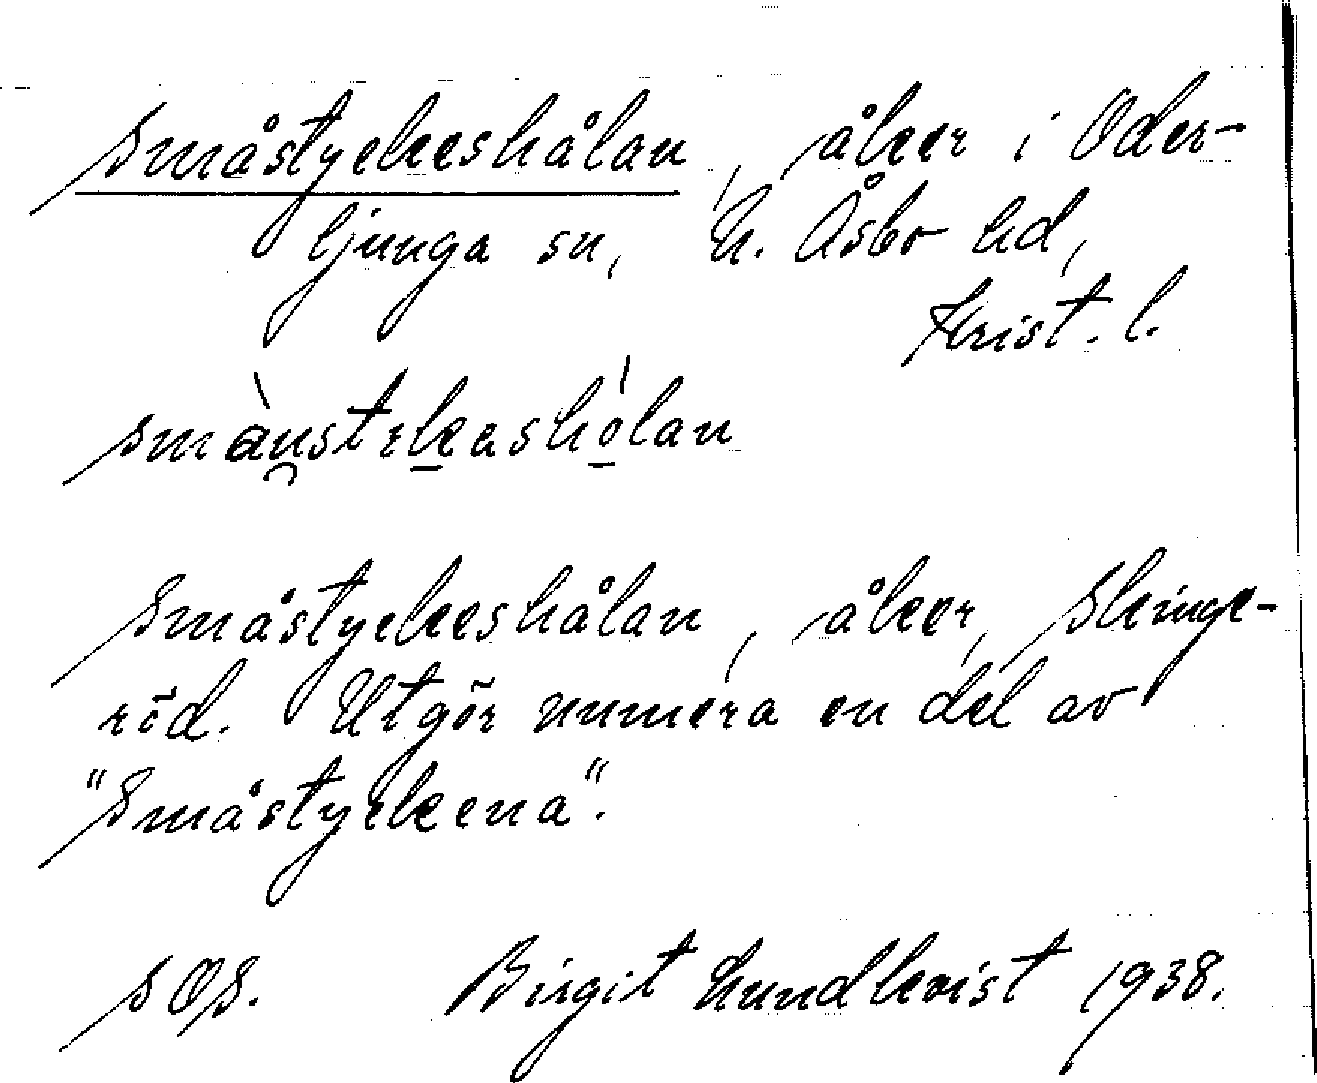 Småstyckeshålan, åker i Oder-
ljunga sn, N. Åsbo hd,
Krist. l.
smàustɩkashólan
Småstyckeshålan, åker, Skinge-
röd. Utgör numera en del av
"Småstyckena".
SOS. Birgit Lundkvist 1938.